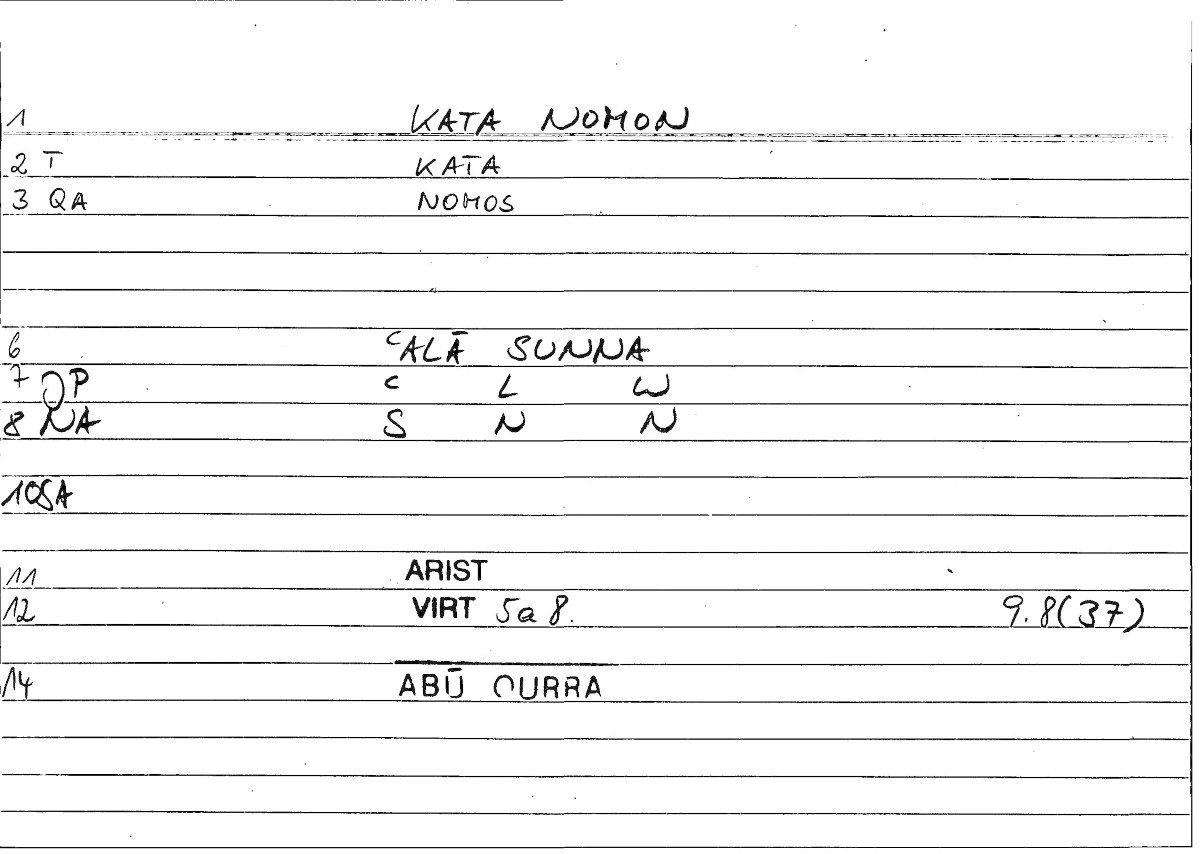 1 KATA NOMON
2 T KATA
3 QA NOMOS
6 ʿALĀ SUNNA
7 QP ʿ L W
8 NA S N N
10 SA
11 ARIST
12 VIRT 5a8. 9.8(37)
14 ABŪ QURRA